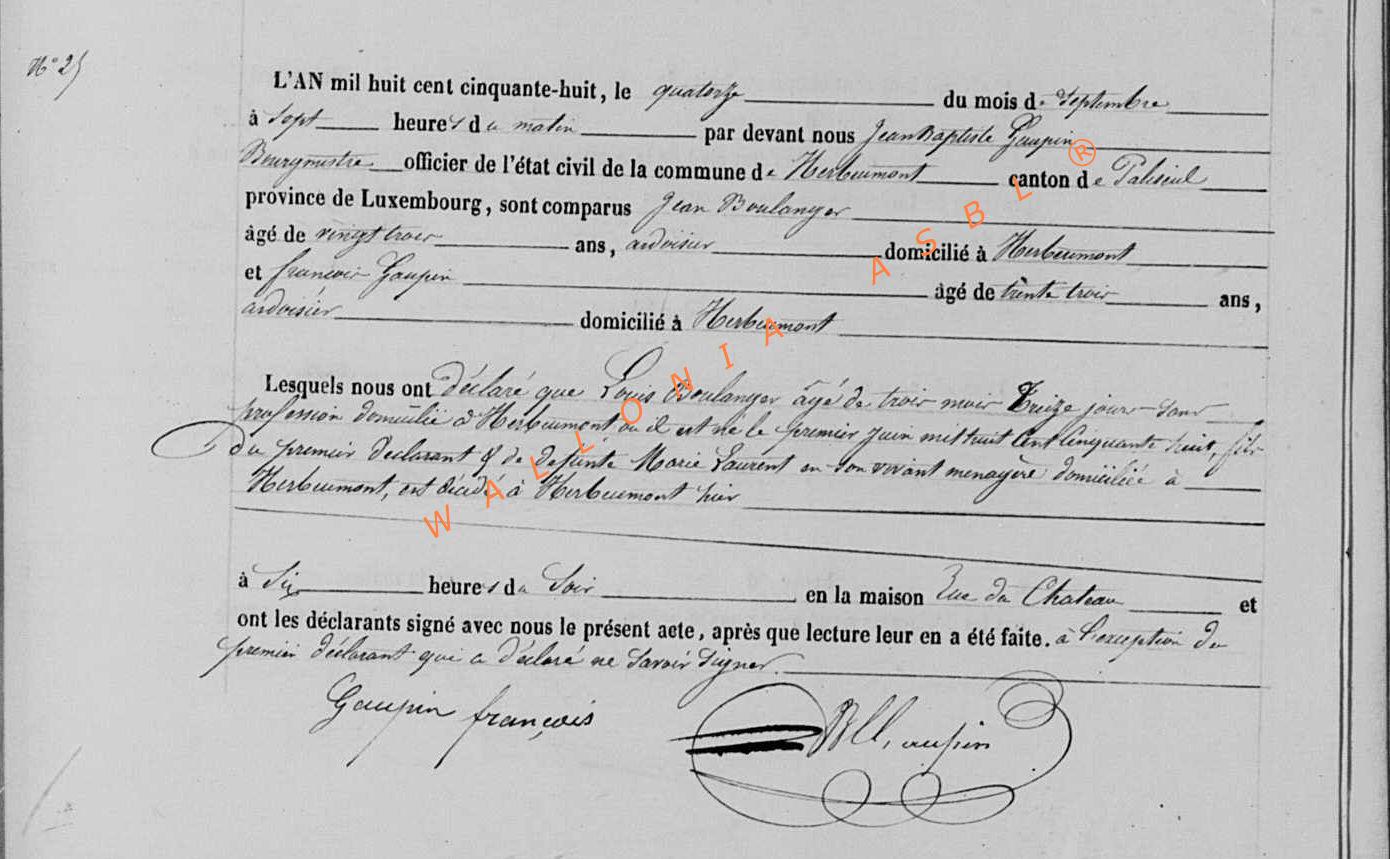 N° 25
L'AN mil huit cent cinquante-huit, le quatorze du mois de Septembre
à Sept heures du matin par devant nous Jean Baptiste Gaupin
Bourgmestre officier de l'état civil de la commune de Herbeumont canton de Paliseul
province de Luxembourg, sont comparus Jean Boulanger
âgé de vingt trois ans, ardoisier domicilié à Herbeumont
et françois Gaupin âgé de trente trois ans,
ardoisier domicilié à Herbeumont
Lesquels nous ont déclaré que Louis Boulanger âgé de trois mois treize jours sans
profession domicilié à Herbeumont ou il est né le premier Juin mil huit Cent Cinquante huit, fils
Du premier Déclarant & de defunte Marie Laurent en son vivant menagère domiciliée à
Herbeumont, est décédé à Herbeumont hier
à Six heures du Soir en la maison Rue du Chateau et
ont les déclarants signé avec nous le présent acte, après que lecture leur en a été faite. à l'exception du
premier déclarant qui a déclaré ne Savoir Signer.
Gaupin françois
WALLONIA ASBL ®